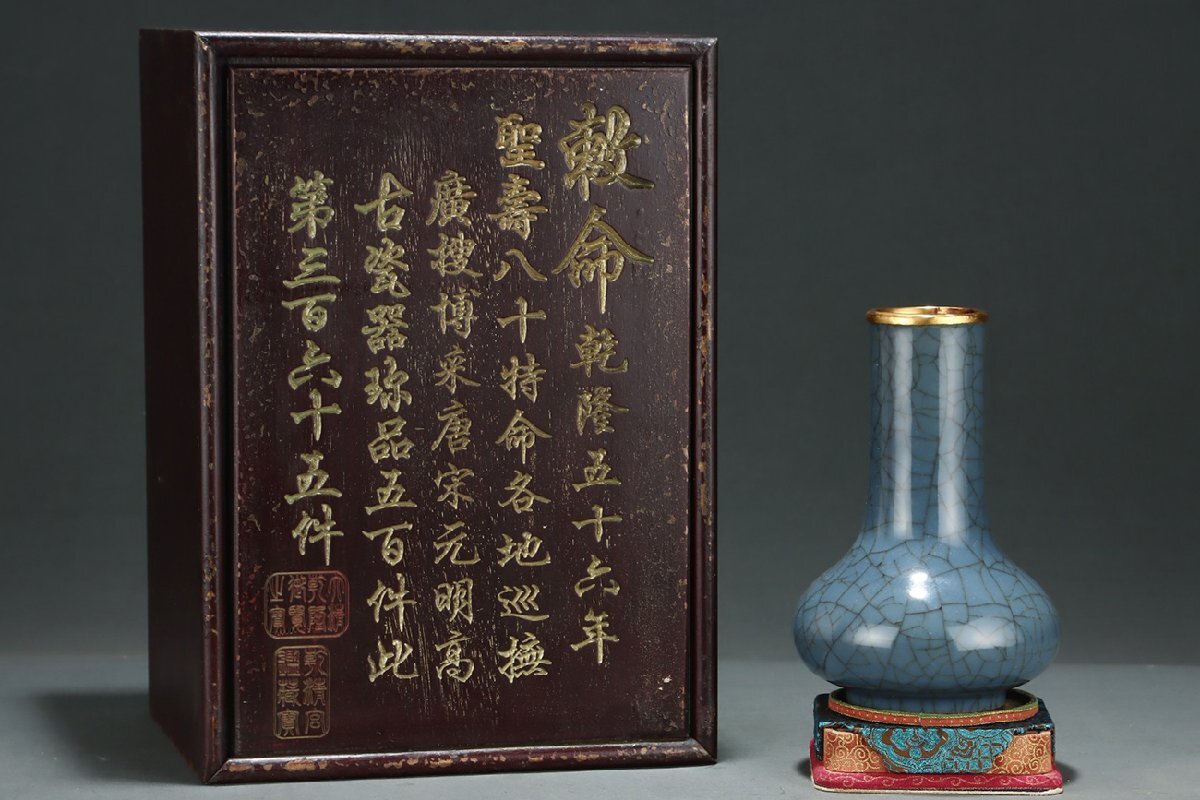 敕命乾隆五十六年
聖壽八十特命各地巡撫
廣搜博采唐宋元明高
古瓷器珎品五百件此
第三百六十五件
大清
乾隆
御覽
之寶
乾清宮
鑒藏寶